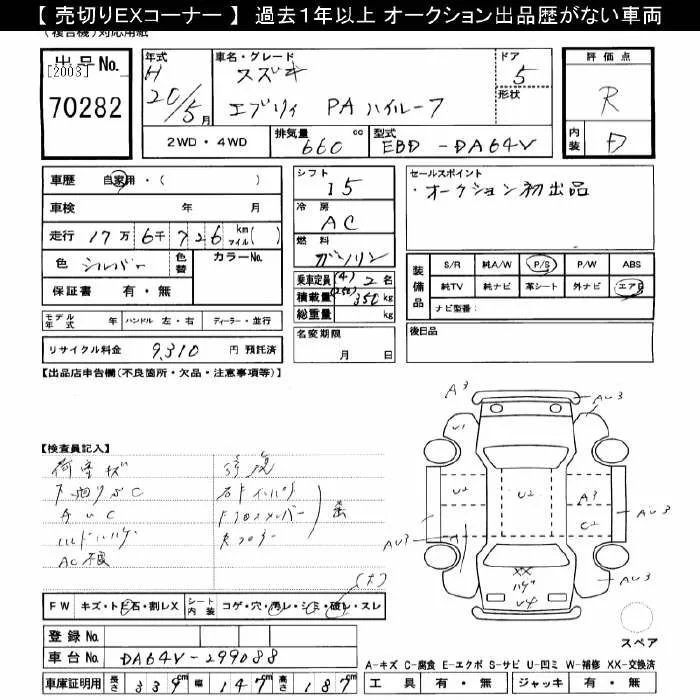 【 売切りEXコーナー 】 過去1年以上 オークション出品歴がない車両
(複合機)対応用紙
出品 No.
[2003]
70282
年式
H
20/5月
車名・グレード
スズキ
エブリィ PA ハイルーフ
ドア
5
形状
評価点
R
内装
D
2WD・4WD
排気量 660 cc
型式 EBD-DA64V
車歴 自家用・( )
車検 年 月
走行 17万 6千 726 km マイル( )
色 シルバー 色替 カラーNo.
保証書 有・無
モデル年式 年 ハンドル 左・右 ディーラー・並行
リサイクル料金 9,310 円 預託済
シフト
I5
冷房
AC
燃料
ガソリン
乗車定員 (4) 2 名
積載量 (250) 350 kg
総重量 kg
名変期限
月 日
セールスポイント
・オークション初出品
装備品
S/R 純A/W P/S P/W ABS
純TV 純ナビ 革シート 外ナビ エアB
ナビ型番:
後日品
【出品店申告欄(不良箇所・欠品・注意事項等)】
【検査員記入】
荷室キズ 修復
下廻りサビC
AC不良
(大)
FW キズ・トビ石・割レX シート内装 コゲ・穴・汚レ・シミ・破レ・スレ
登録 No.
車台 No. DA64V-299088
車庫証明用 長さ 339cm 幅 147cm 高さ 187cm
A3 AU3
U1
U2 U2 A3
C2
AU3 AU3
A
XX
U4
AU3
スペア
A-キズ C-腐食 E-エクボ S-サビ U-凹ミ W-補修 XX-交換済
工具 有・無 ジャッキ 有・無